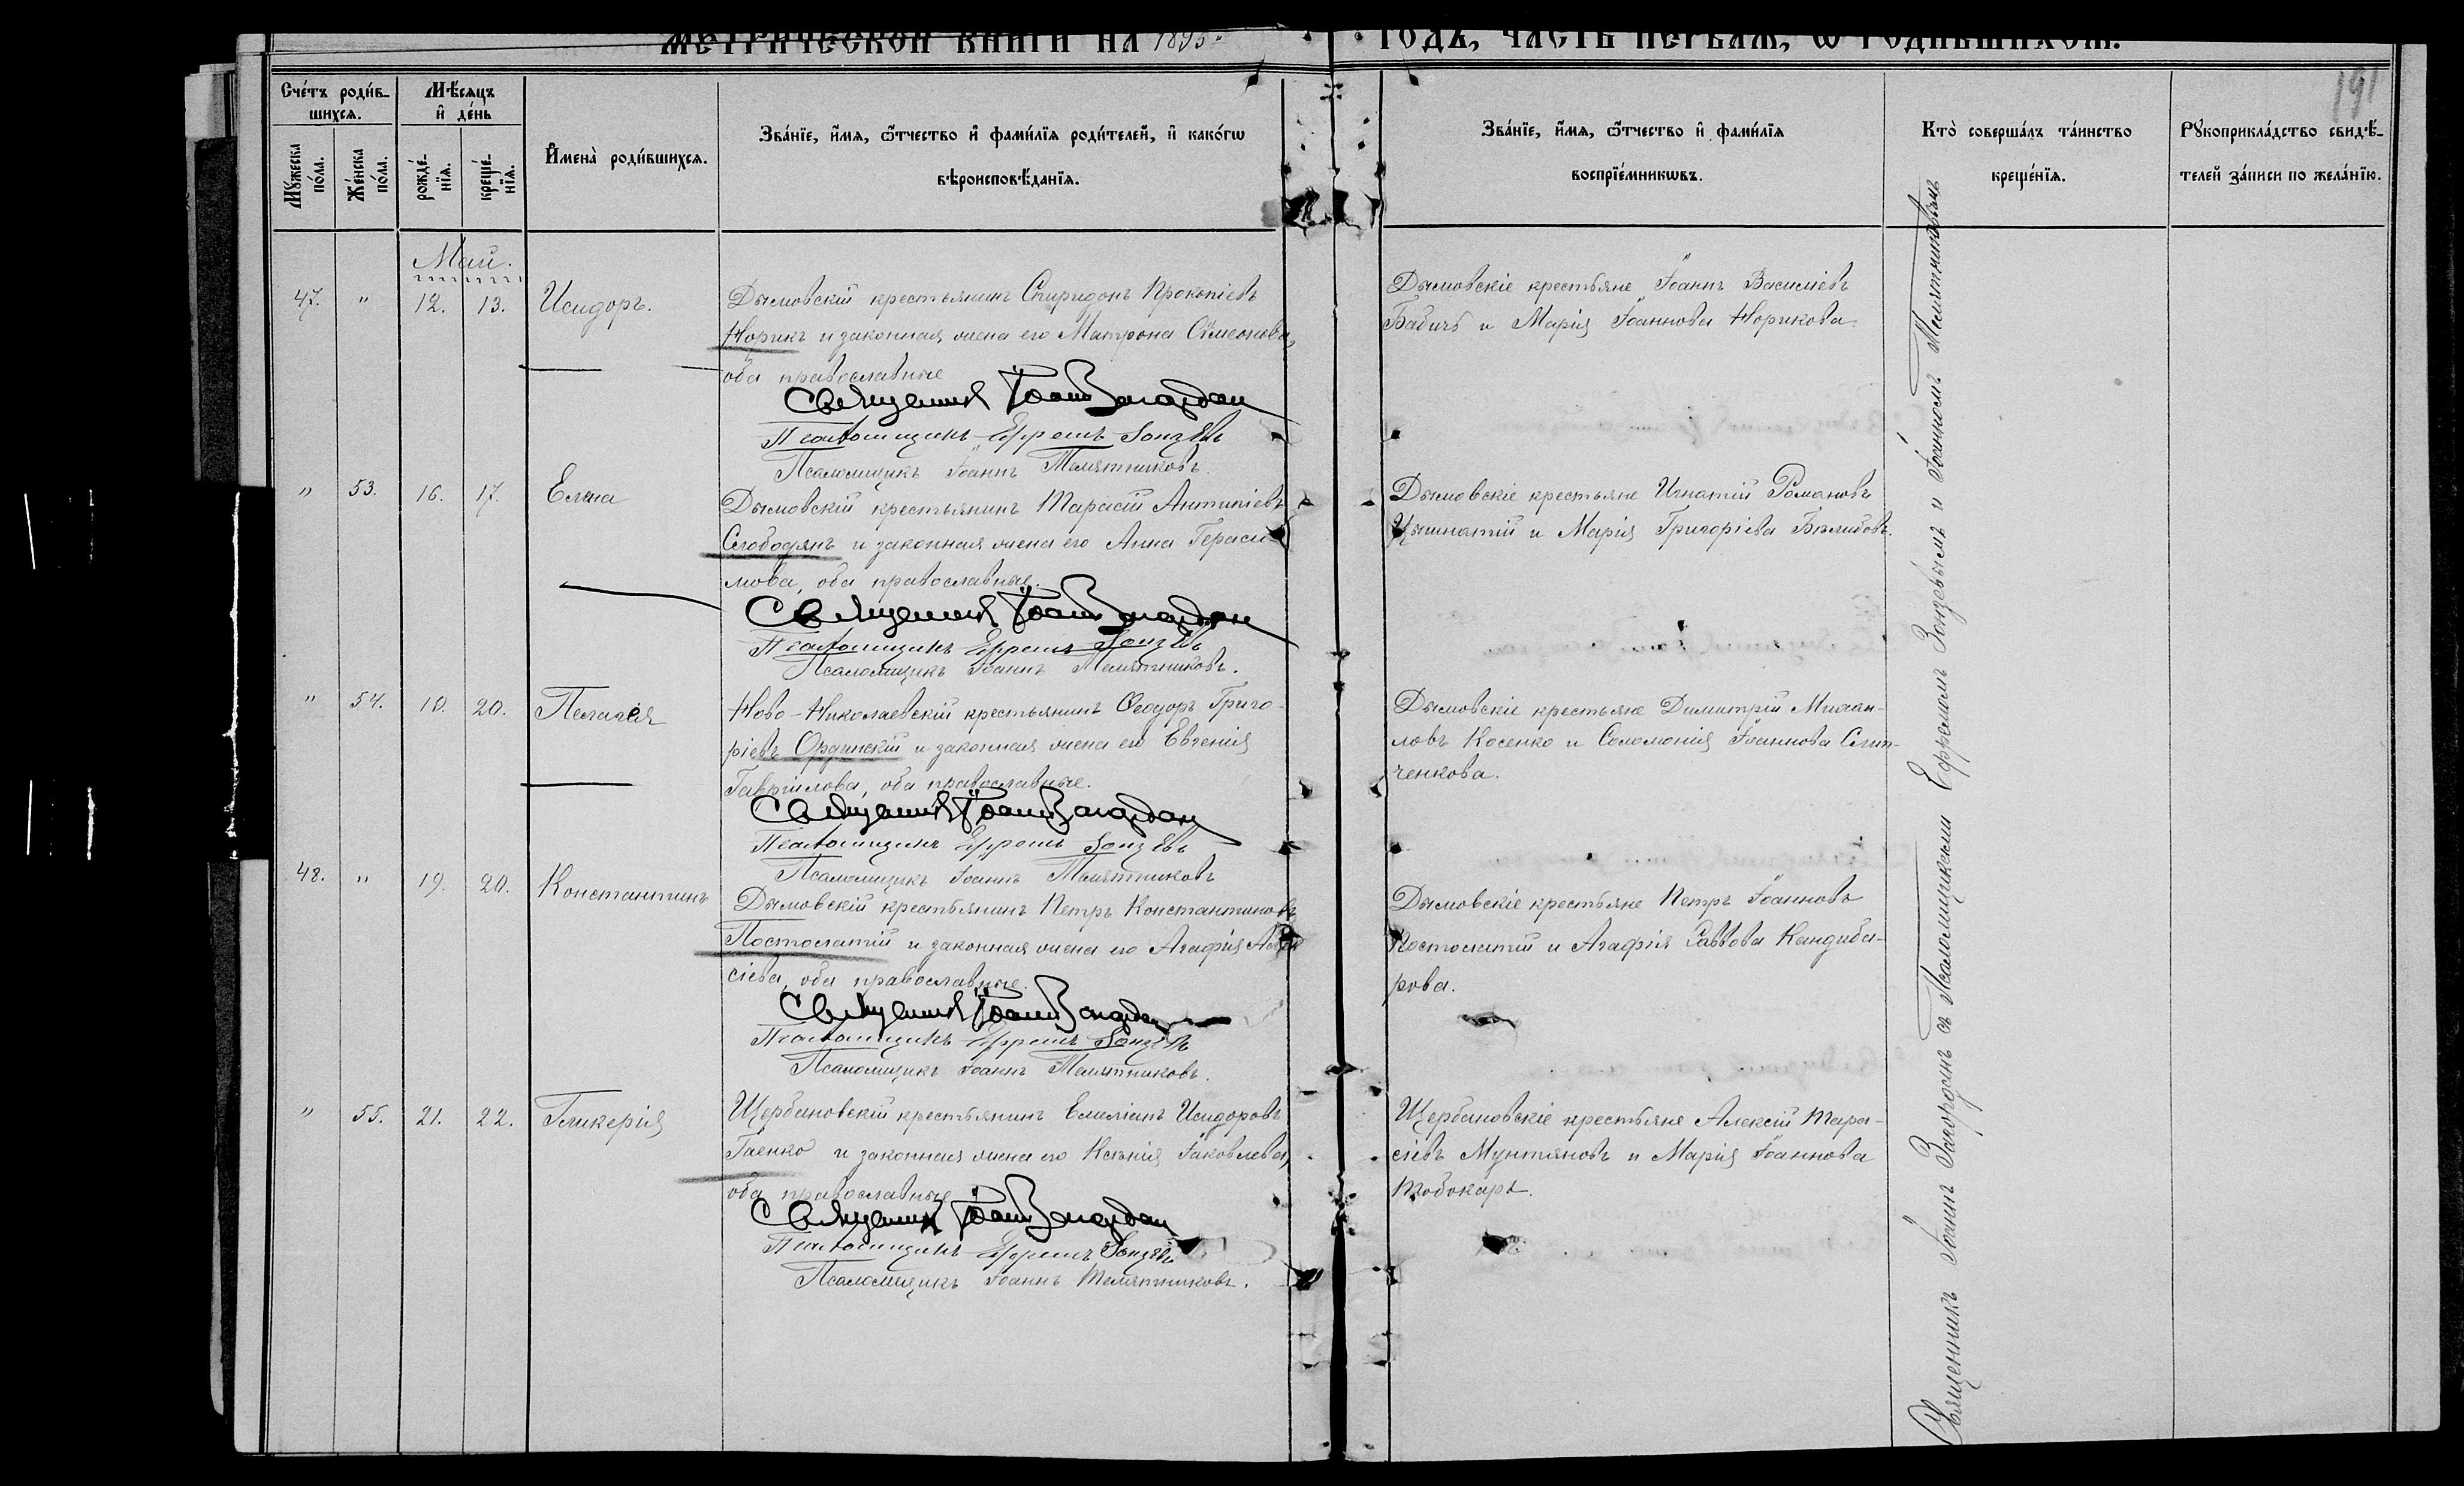 МЕТРИЧЕСКОЙ КНИГИ НА 1895 ГОДЪ, ЧАСТЬ ПЕРВАЯ, Ѡ РОДИВШИХСЯ.
191
Сче́тъ роди́в-
шихся.
Мѣ́сяцъ
и҆ де́нь
Мꙋ́жеска
по́ла.
Же́нска
по́ла.
рожде́-
нїя.
креще́-
нїя.
И҆мена̀ роди́вшихся.
Зва́нїе, и҆́мя, ѻ҆́тчество и҆ фами́лїя роди́телей, и҆ како́гѡ
вѣроисповѣ́данїя.
Зва́нїе, и҆́мя, ѻ҆́тчество и҆ фами́лїя
воспрїе́мникѡвъ.
Кто̀ соверша́лъ та́инство
креще́нїя.
Рꙋкоприкла́дство свидѣ́-
телей за́писи по жела́нїю.
Май.
47. " 12. 13. Исидоръ.
Дымовскій крестьянинъ Спиридонъ Прокопіевъ
Норикъ и законная жена его Матрона Симеонова,
оба православные
Священникъ Іоаннъ Загордан
Псаломщикъ Ефремъ Зонзѣвъ
Псаломщикъ Іоаннъ Телятниковъ.
Дымовскіе крестьяне Іоаннъ Василіевъ
Бабичъ и Марія Іоаннова Норикова.
" 53. 16. 17. Елена
Дымовскій крестьянинъ Тарасій Антипіевъ
Слободянъ и законная жена его Анна Гераси-
мова, оба православные.
Священникъ Іоаннъ Загордан
Псаломщикъ Ефремъ Зонзѣвъ
Псаломщикъ Іоаннъ Телятниковъ.
Дымовскіе крестьяне Игнатій Романовъ
Цыгинатій и Марія Григоріева
" 54. 18. 20. Пелагія
Ново-Николаевскій крестьянинъ Ѳеодоръ Григо-
ріевъ Ординскій и законная жена его Евгенія
Гавріилова, оба православные.
Священникъ Іоаннъ Загордан
Псаломщикъ Ефремъ Зонзѣвъ
Псаломщикъ Іоаннъ Телятниковъ
Дымовскіе крестьяне Димитрій Михаи-
ловъ Косенко и Соломонія Іоаннова Слип-
ченкова.
48. " 19. 20. Константинъ
Дымовскій крестьянинъ Петръ Константиновъ
Постолатій и законная жена его Агафія
сіева, оба православные.
Священникъ Іоаннъ Загордан
Псаломщикъ Ефремъ Зонзѣвъ
Псаломщикъ Іоаннъ Телятниковъ.
Дымовскіе крестьяне Петръ Іоанновъ
Постолатій и Агафія Саввова Кандиба-
рова.
" 55. 21. 22. Гликерія
Щербановскій крестьянинъ Емиліанъ Исидоровъ
Гаенко и законная жена его Ксенія Іаковлева,
оба православные
Священникъ Іоаннъ Загордан
Псаломщикъ Ефремъ Зонзѣвъ
Псаломщикъ Іоаннъ Телятниковъ.
Щербановскіе крестьяне Алексій Тара-
сіевъ Мунтяновъ и Марія Іоаннова
Тобокарь.
Священникъ Іоаннъ Загорданъ съ Псаломщиками Ефремомъ Зонзевымъ и Іоанномъ Телятниковымъ